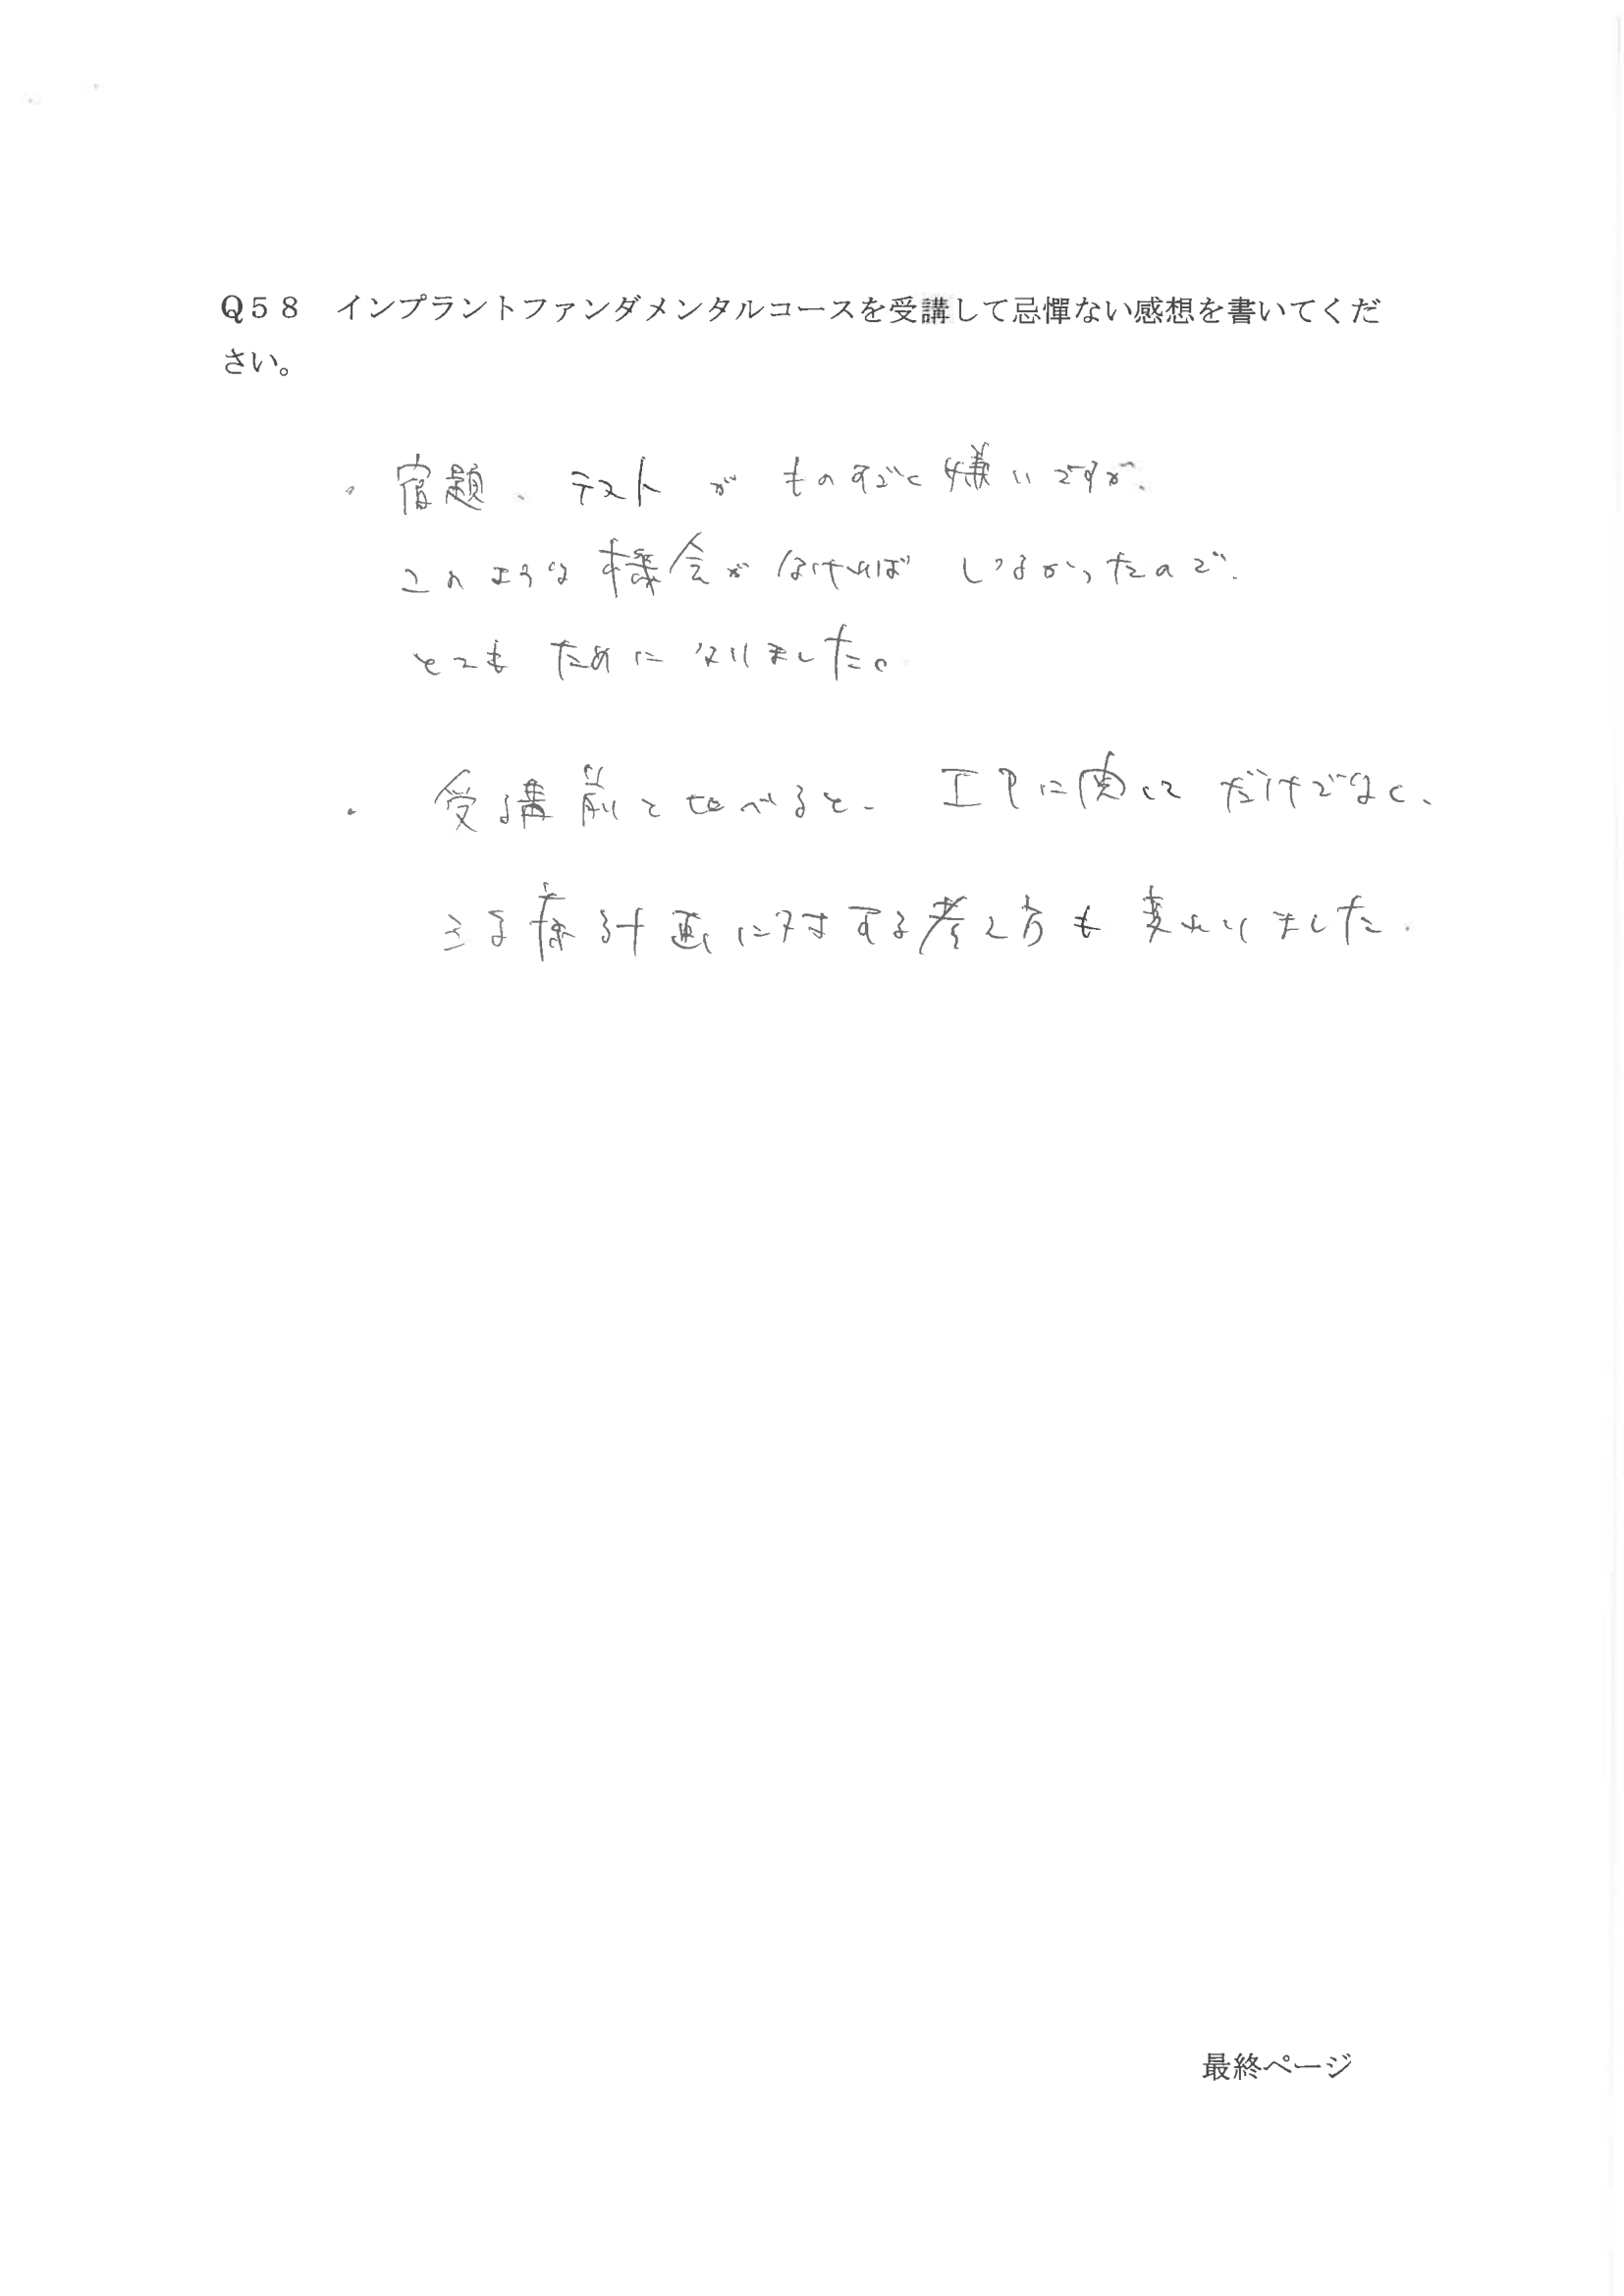 Q58 インプラントファンダメンタルコースを受講して忌憚ない感想を書いてくだ
さい。
・宿題、テストが ものすごく嫌いですが、
このような機会がなければ しなかったので、
とても ためになりました。
・受講前と比べると、 IPに関して だけでなく、
治療計画に対する考え方も変わりました.
最終ページ